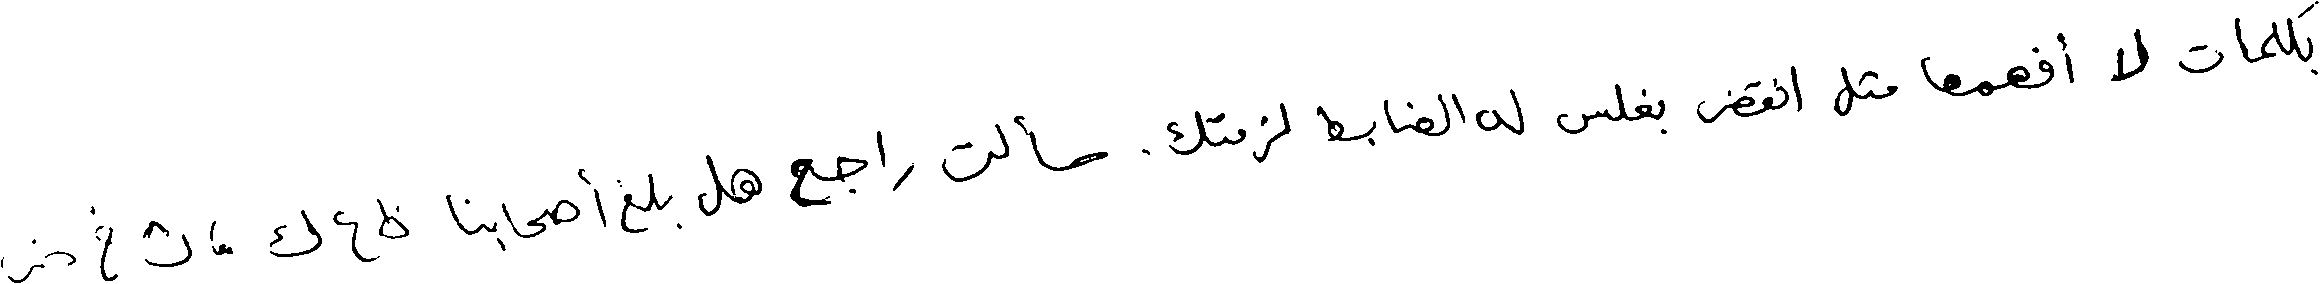 بكلمات لا أفهمها مثل انقض بفلس له الضابط لزمتك. سألت راجع هل بلغ أصحابنا ظ ع ك هـ ث غ ض